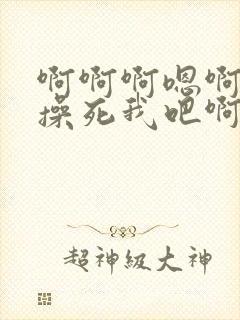 啊啊啊嗯啊
操死我吧啊
超神级大神